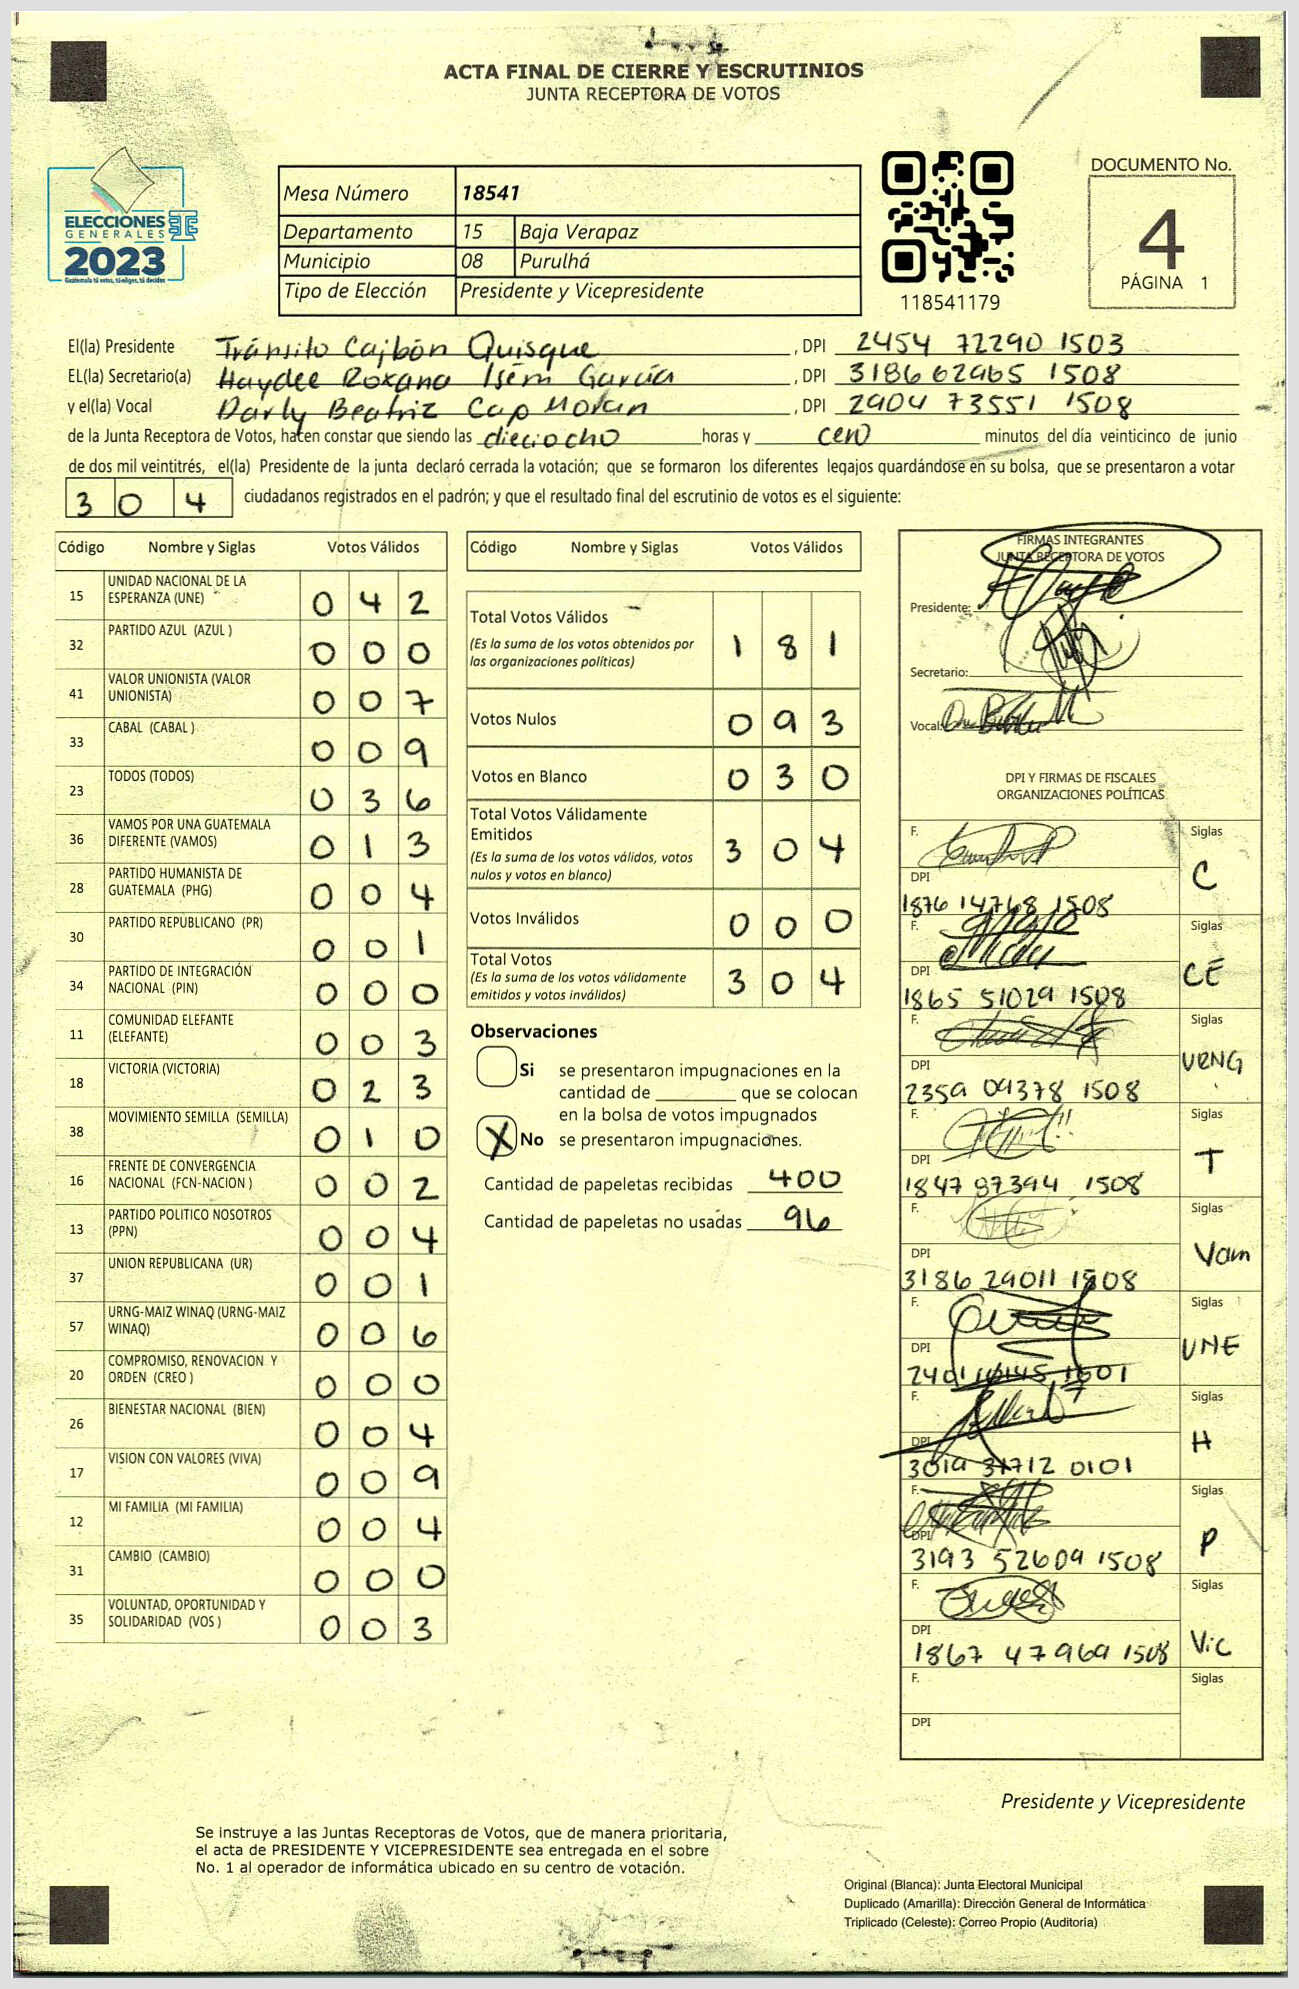 ACTA FINAL DE CIERRE Y ESCRUTINIOS
JUNTA RECEPTORA DE VOTOS
ELECCIONES
GENERALES
2023
Guatemala tú votas, tú eliges, tú decides
Mesa Número 18541
Departamento 15 Baja Verapaz
Municipio 08 Purulhá
Tipo de Elección Presidente y Vicepresidente
118541179
DOCUMENTO No.
4
PÁGINA 1
El(la) Presidente Tránsito Cajbón Quisque, DPI 2454 72290 1503
EL(la) Secretario(a) Haydee Roxana Isém García, DPI 3186 62965 1508
y el(la) Vocal Darly Beatriz Cap Moran, DPI 2904 73551 1508
de la Junta Receptora de Votos, hacen constar que siendo las dieciocho horas y cero minutos del día veinticinco de junio
de dos mil veintitrés, el(la) Presidente de la junta declaró cerrada la votación; que se formaron los diferentes legajos guardándose en su bolsa, que se presentaron a votar
3 0 4 ciudadanos registrados en el padrón; y que el resultado final del escrutinio de votos es el siguiente:
Código Nombre y Siglas Votos Válidos
15 UNIDAD NACIONAL DE LA ESPERANZA (UNE) 0 4 2
32 PARTIDO AZUL (AZUL ) 0 0 0
41 VALOR UNIONISTA (VALOR UNIONISTA) 0 0 7
33 CABAL (CABAL ) 0 0 9
23 TODOS (TODOS) 0 3 6
36 VAMOS POR UNA GUATEMALA DIFERENTE (VAMOS) 0 1 3
28 PARTIDO HUMANISTA DE GUATEMALA (PHG) 0 0 4
30 PARTIDO REPUBLICANO (PR) 0 0 1
34 PARTIDO DE INTEGRACIÓN NACIONAL (PIN) 0 0 0
11 COMUNIDAD ELEFANTE (ELEFANTE) 0 0 3
18 VICTORIA (VICTORIA) 0 2 3
38 MOVIMIENTO SEMILLA (SEMILLA) 0 1 0
16 FRENTE DE CONVERGENCIA NACIONAL (FCN-NACION ) 0 0 2
13 PARTIDO POLITICO NOSOTROS (PPN) 0 0 4
37 UNION REPUBLICANA (UR) 0 0 1
57 URNG-MAIZ WINAQ (URNG-MAIZ WINAQ) 0 0 6
20 COMPROMISO, RENOVACION Y ORDEN (CREO ) 0 0 0
26 BIENESTAR NACIONAL (BIEN) 0 0 4
17 VISION CON VALORES (VIVA) 0 0 9
12 MI FAMILIA (MI FAMILIA) 0 0 4
31 CAMBIO (CAMBIO) 0 0 0
35 VOLUNTAD, OPORTUNIDAD Y SOLIDARIDAD (VOS ) 0 0 3
Código Nombre y Siglas Votos Válidos
Total Votos Válidos 1 8 1
(Es la suma de los votos obtenidos por
las organizaciones políticas)
Votos Nulos 0 9 3
Votos en Blanco 0 3 0
Total Votos Válidamente
Emitidos 3 0 4
(Es la suma de los votos válidos, votos
nulos y votos en blanco)
Votos Inválidos 0 0 0
Total Votos 3 0 4
(Es la suma de los votos válidamente
emitidos y votos inválidos)
Observaciones
Si se presentaron impugnaciones en la
cantidad de ________ que se colocan
en la bolsa de votos impugnados
X No se presentaron impugnaciones.
Cantidad de papeletas recibidas 400
Cantidad de papeletas no usadas 96
FIRMAS INTEGRANTES
JUNTA RECEPTORA DE VOTOS
Presidente:
Secretario:
Vocal:
DPI Y FIRMAS DE FISCALES
ORGANIZACIONES POLÍTICAS
F. Siglas
DPI C
1876 14768 1508
F. Siglas
DPI CE
1865 51029 1508
F. Siglas
DPI URNG
2359 09378 1508
F. Siglas
DPI T
1847 87394 1508
F. Siglas
DPI Vam
3186 29011 1508
F. Siglas
DPI UNE
F. Siglas
DPI H
3019 31712 0101
F. Siglas
DPI P
3193 52609 1508
F. Siglas
DPI Vic
1867 47969 1508
F. Siglas
DPI
Presidente y Vicepresidente
Se instruye a las Juntas Receptoras de Votos, que de manera prioritaria,
el acta de PRESIDENTE Y VICEPRESIDENTE sea entregada en el sobre
No. 1 al operador de informática ubicado en su centro de votación.
Original (Blanca): Junta Electoral Municipal
Duplicado (Amarilla): Dirección General de Informática
Triplicado (Celeste): Correo Propio (Auditoría)